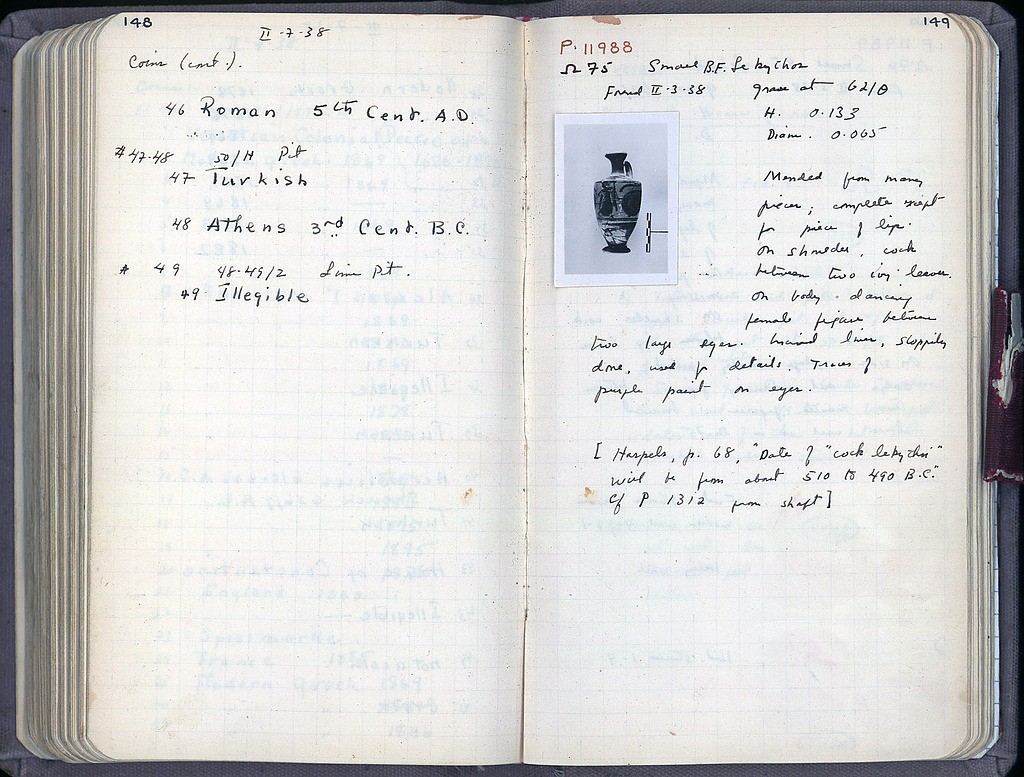 148
II-7-38
Coins (cont.).
46 Roman 5th Cent. A.D.
#47-48 50/H Pit
47 Turkish
48 Athens 3rd Cent. B.C.
# 49 48-49/2 Lime Pit.
49 Illegible
149
P. 11988
Ω 75 Small B.F. Lekythos
Found II-3-38 grave at 62/Θ
H. 0.133
Diam. 0.065
Mended from many
pieces; complete except
for piece of lip.
On shoulder, cock
between two ivy leaves.
On body - dancing
female figure between
two large eyes. Incised lines, sloppily
done, used for details. Traces of
purple paint on eyes.
[ Haspels, p. 68, "Date of "cock lekythoi"
will be from about 510 to 490 B.C."
Cf P 1312 from shaft ]